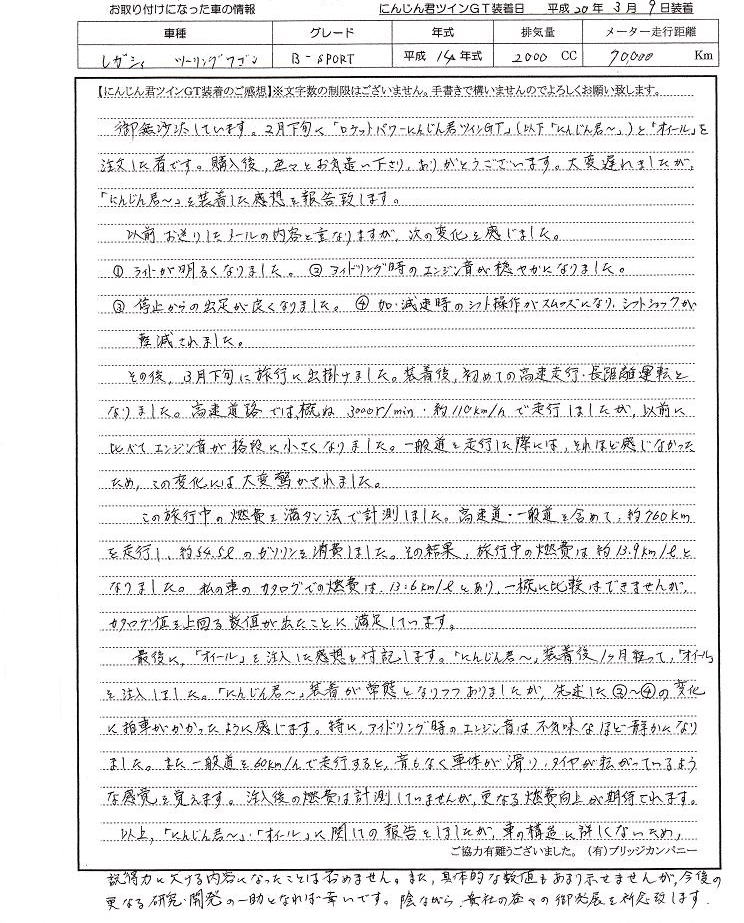 お取り付けになった車の情報 にんじん君ツインGT装着日 平成20年3月9日装着
車種 グレード 年式 排気量 メーター走行距離
レガシィ ツーリングワゴン B-SPORT 平成14年式 2000 CC 70,000 Km
【にんじん君ツインGT装着のご感想】※文字数の制限はございません。手書きで構いませんのでよろしくお願い致します。
御無沙汰しています。2月下旬に「ロケットパワーにんじん君ツインGT」(以下「にんじん君~」)と「オイール」を
注文した者です。購入後、色々とお気遣い下さり、ありがとうございます。大変遅れましたが、
「にんじん君~」を装着した感想を報告致します。
以前お送りしたメールの内容と重なりますが、次の変化を感じました。
①ライトが明るくなりました。②アイドリング時のエンジン音が穏やかになりました。
③停止からの出足が良くなりました。④加・減速時のシフト操作がスムーズになり、シフトショックが
軽減されました。
その後、3月下旬に旅行に出掛けました。装着後、初めての高速走行・長距離運転と
なりました。高速道路では概ね3000r/min・約110km/hで走行しましたが、以前に
比べてエンジン音が格段に小さくなりました。一般道を走行した際には、それほど感じなかった
ため、この変化には大変驚かされました。
この旅行中の燃費を満タン法で計測しました。高速道・一般道を含めて、約760km
を走行し、約54.5ℓのガソリンを消費しました。その結果、旅行中の燃費は約13.9km/ℓと
なりました。私の車のカタログでの燃費は、13.6km/ℓとあり、一概に比較はできませんが、
カタログ値を上回る数値が出たことに満足しています。
最後に、「オイール」を注入した感想も付記します。「にんじん君~」装着後1ヶ月経って、「オイール」
を注入しました。「にんじん君~」装着が常態となりつつありましたが、先述した②~④の変化
に拍車がかかったように感じます。特に、アイドリング時のエンジン音は不気味なほど静かになり
ました。また一般道を60km/hで走行すると、音もなく車体が滑り、タイヤが転がっているよう
な感覚を覚えます。注入後の燃費は計測していませんが、更なる燃費向上が期待されます。
以上、「にんじん君~」・「オイール」に関しての報告をしましたが、車の構造に詳しくないため、
ご協力有難うございました。(有)ブリッジカンパニー
説得力に欠ける内容になったことは否めません。また、具体的な数値もあまり示せませんが、今後の
更なる研究・開発の一助となれば幸いです。陰ながら、貴社の益々の御発展を祈念致します。